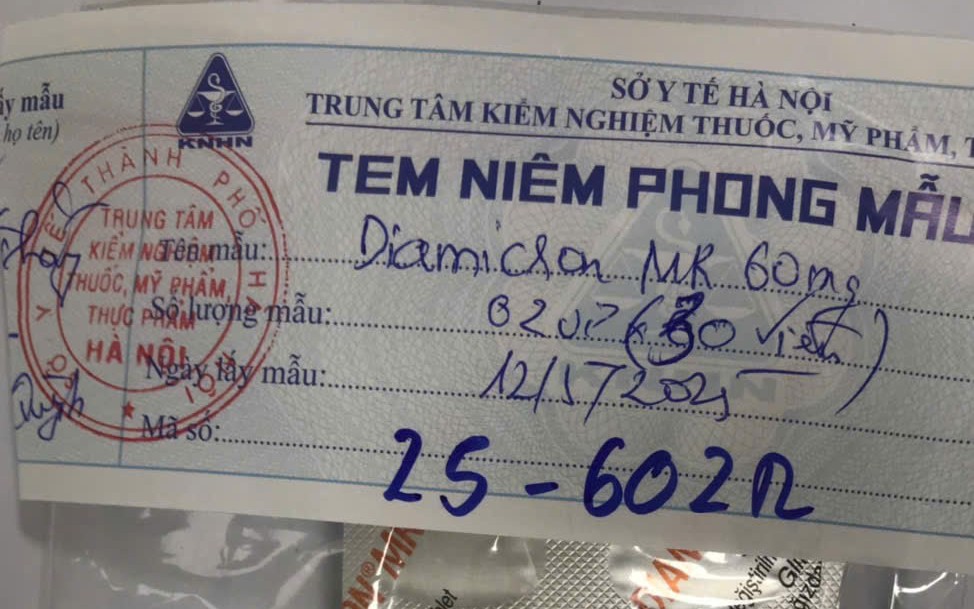 SỞ Y TẾ HÀ NỘI
TRUNG TÂM KIỂM NGHIỆM THUỐC, MỸ PHẨM, T
KNHN
TEM NIÊM PHONG MẪU
ấy mẫu
họ tên)
Y TẾ THÀNH PHỐ HÀ NỘI
TRUNG TÂM
KIỂM NGHIỆM
THUỐC, MỸ PHẨM
THỰC PHẨM
HÀ NỘI
Tên mẫu: Diamicron MR 60mg
Số lượng mẫu: (30 viên)
Ngày lấy mẫu: 12/5/2025
Mã số:
25-602
MR
DIAM